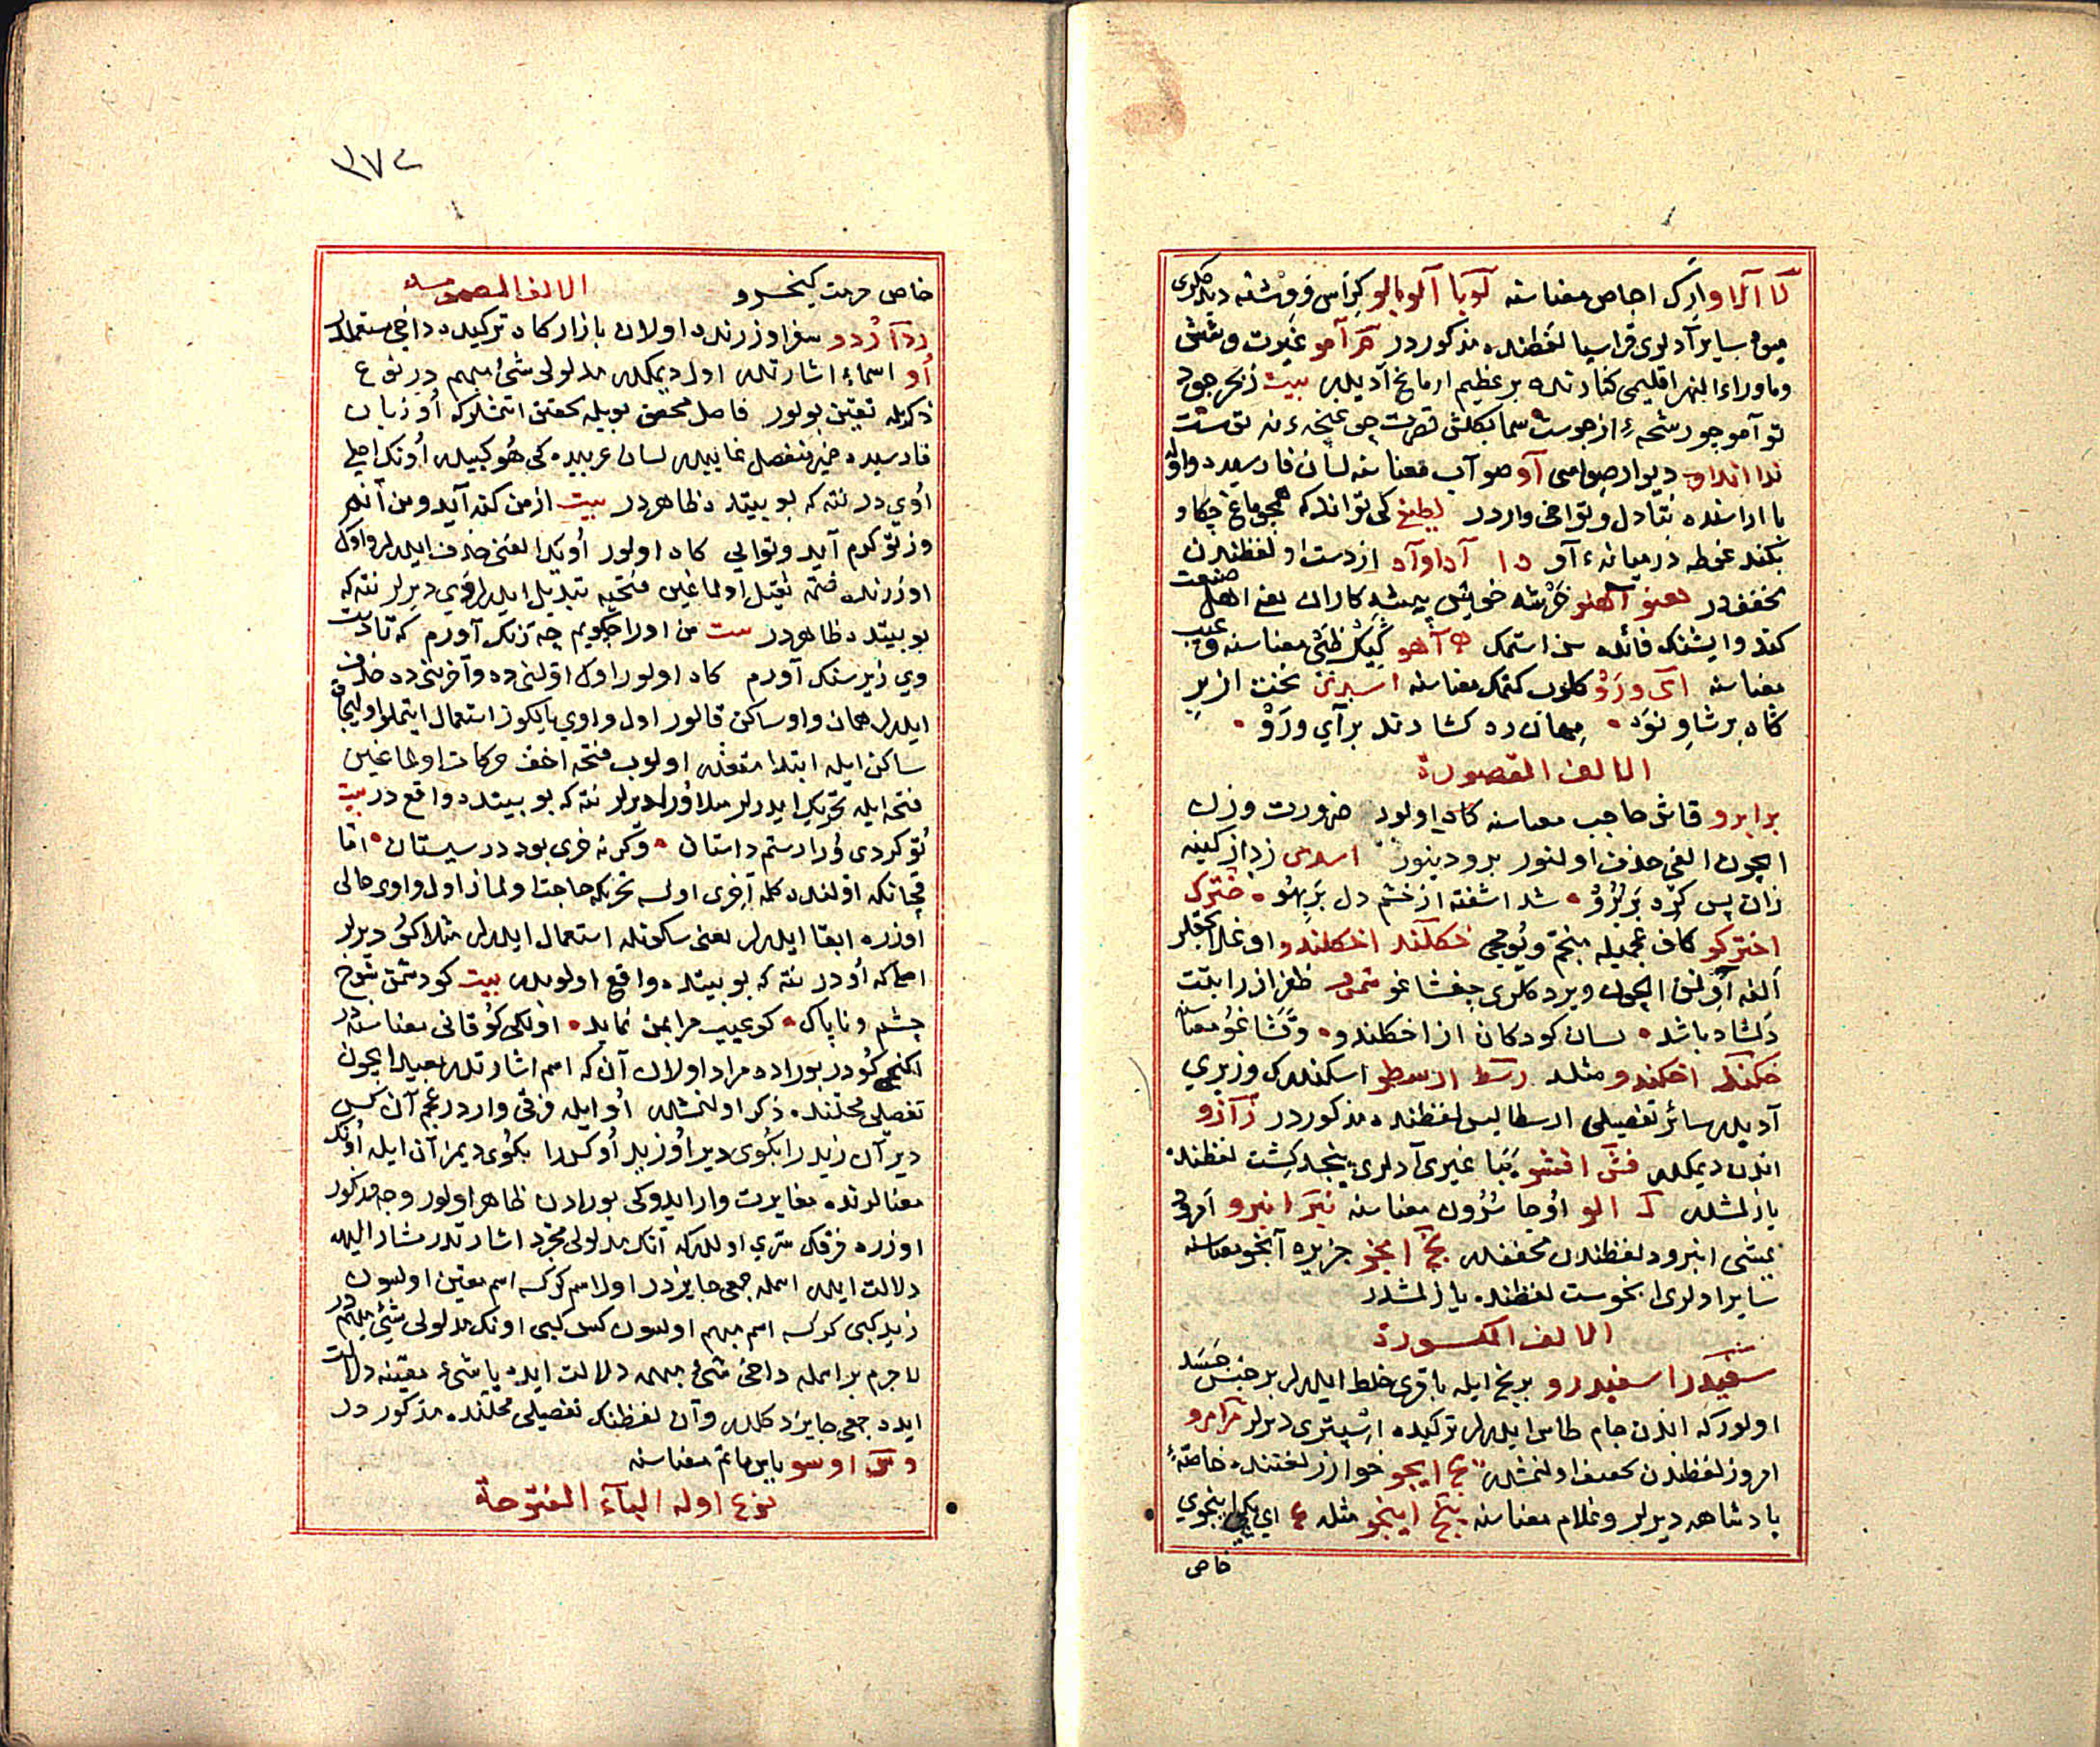 آلا آلو ارك اجاص معناسنه آلوبا آلوبالو كراس فروشنه ديدكلرى
ميوه ساير آدلرى قراسيا لفظنده مذكوردر آمو غيرت و شش
وماوراء النهر اقليمى كنارنده بر عظيم ارماغ آديدر بيت زبحر جود
تو آمو جو رشحهء از جوست سما بگلشن قصرت چو غنچهء نه توست
اندا انداو ديوار صواسى آو صو آب معناسنه لسان فارسيده واو
با اراسنده تبادل و تواخى واردر كى تواند كه همچو ماغ چكاو
بكند غوطه در ميانهء آو دا آداوآد ازدست او لفظندن
مخففدر آهنو خويش پيشه كاران يعنى اهل صنعت
كند و ايشنك فائده سن استمك آهو كيك ظبى معناسنه و عيب
معناسنه آى ورو كلوب كتمك معناسنه نخست از بر
كاه بر شاو نوَد مهمان ده كشادند بر آي ورَوْ
الالف المقصورة
ابرو قاش حاجب معناسنه كاه اولور ضرورت وزن
ايچون الفى حذف اولنور برو دينور زد از كينه
زان پس گره بر برو شد اشفته از خشم دل بر پهو
اختركو كاف عجميله منجم و يوجى اخكلندو اوغلانجقلر
الفه اولمق ايچون ويردكلرى جغشاغو ظفر از رايتت
دلشاد باشد بسان كودكان از اخكلندو و تشاغو معناسنه
اخكندو مثله ارسطو اسكندرك وزيري
آديدر سائر تفصيلى ارسطاليس لفظنده مذكوردر آزو
اندن ديمكدر افشو غيرى آدلرى پنجد كشت لفظنده
يازلمشدر الو اوجا سُرُون معناسنه انبرو امرود
يمشى انبرود لفظندن مخففدر انجو جزيره آبخو معناسنه
ساير ادلرى ابخوست لفظنده يازلمشدر
الالف المكسورة
اسفيدرو برنج ايله باقرى خلط ايدرلر بر جنس جسد
اولور كه اندن جام طاس ايدرلر تركيده اسپيترى ديرلر امرو
امروز لفظندن مخفف اولنمشدر ايجو خوارزم لغتنده خاصّهٔ
پادشاهه ديرلر و غلام معناسنه اينجو مثله ع اى اينجوى
خاص
٣٧٤
خاص حرمت كيخسرو الالف المضمومه
اردو سفر اوزرنده اولان بازاركاه تركيده داخى مستعملدر
اُو اسماء اشارتدر اول ديمكدر مدلولى شئ مبهم در نوع
ذكريله تعيّن بولور فاضل محقق بويله تحقيق اتمشلر كه اُو زبان
فارسيده ضمير منفصل غائبدر لسان عربيده كى هُو كبيدر اُونك اصلى
اوي در نته كه بو بيتده ظاهردر بيت از من كنه آيد و من آنم
وز تو كرم آيد و تو آنى كاه اولور اُونك الفنى حذف ايدرلر و اول
اوزرنده ضمّه ثقيل اولماغين فتحيه تبديل ايدرلر وَي ديرلر نته كه
بو بيتده ظاهردر بيت من اورا چگويم چه رنگ آورم كه تا دست
وي زير سنگ آورم كاه اولور اول اولنى ده و آخرنى ده حذف
ايدرلر همان واو ساكن قالور اول واوي يالكوز استعمال ايتملو اوليجاق
ساكن ايله ابتدا متعذر اولوب فتحه اخف حركات اولماغين
فتحه ايله تحريك ايدرلر مثلا وَرا ديرلر نته كه بو بيتده واقع در بيت
تو كردى وَرا رستم داستان وگرنه خرى بود در سيستان امّا
قچانكه اولنده كلمه آخرى اولسه تحريكه حاجت اولماز اول واوى حالى
اوزره ابقا ايدرلر يعنى سكونله استعمال ايدرلر مثلا كو ديرلر
اصلى كه اُو در نته كه بو بيتده واقع اولوبدر بيت كو دشمن شوخ
چشم و ناپاك كو عيب مرا بمن نمايد اولكى كُو قانى معناسنه در
ايكنجى كو در بوراده مراد اولان آن كه اسم اشارتدر بعيد ايچون
تفصيلى محلنده ذكر اولنمشدر اُو ايله فرقى واردر عجم آن كس
دير آن زيد را بگوى دير اُو زيد اُو كس را بگوى ديمز آن ايله اُونك
معنالرنده مغايرت وار ايدوكى بورادن ظاهر اولور وجه مذكور
اوزره فرقك سرّي اولدر كه آنك مدلولى مجرّد اشارتدر مشار اليهه
دلالت ايدر اسمله جمعى جايزدر اول اسم كركسه اسم معيّن اولسون
زيد كبى كركسه اسم مبهم اولسون كس كبى اونك مدلولى شئ مبهم در
لاجرم بر اسمله داخى شئ مبهمه دلالت ايده يا شئ معيّنه دلالت
ايده جمعى جايز دكلدر و آن لفظنك تفصيلى محلنده مذكوردر
اوسو ياس ماتم معناسنه
نوع اول الباء المفتوحة